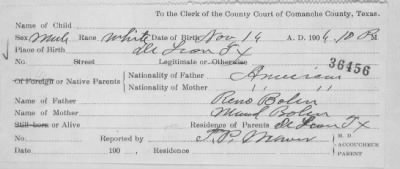 To the Clerk of the County Court of Comanche County, Texas.
Name of Child
Sex Male Race White Date of Birth Nov 14 A. D. 1906 10 P M
Place of Birth De Leon Tx
No. Street Legitimate or Otherwise 36456
Of Foreign or Native Parents Nationality of Father American
Nationality of Mother " "
Name of Father Reno Bolin
Name of Mother Maud Bolin
Still-born or Alive Residence of Parents De Leon Tx
No. Reported by T. P. M. D.
ACCOUCHEUR
Date 190 , Residence PARENT